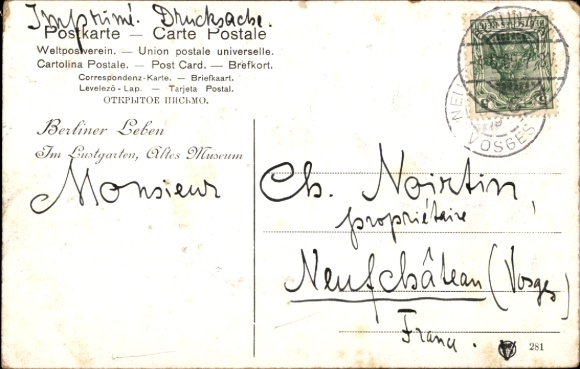 Imprimé. Drucksache.
Postkarte – Carte Postale
Weltpostverein. – Union postale universelle.
Cartolina Postale. – Post Card. – Brefkort.
Correspondenz-Karte. – Briefkaart.
Levelező-Lap. – Tarjeta Postal.
ОТКРЫТОЕ ПИСЬМО.
Berliner Leben
Im Lustgarten, Altes Museum
Monsieur
Ch. Noirtin,
propriétaire
Neufchâteau (Vosges)
France.
281
VOSGES